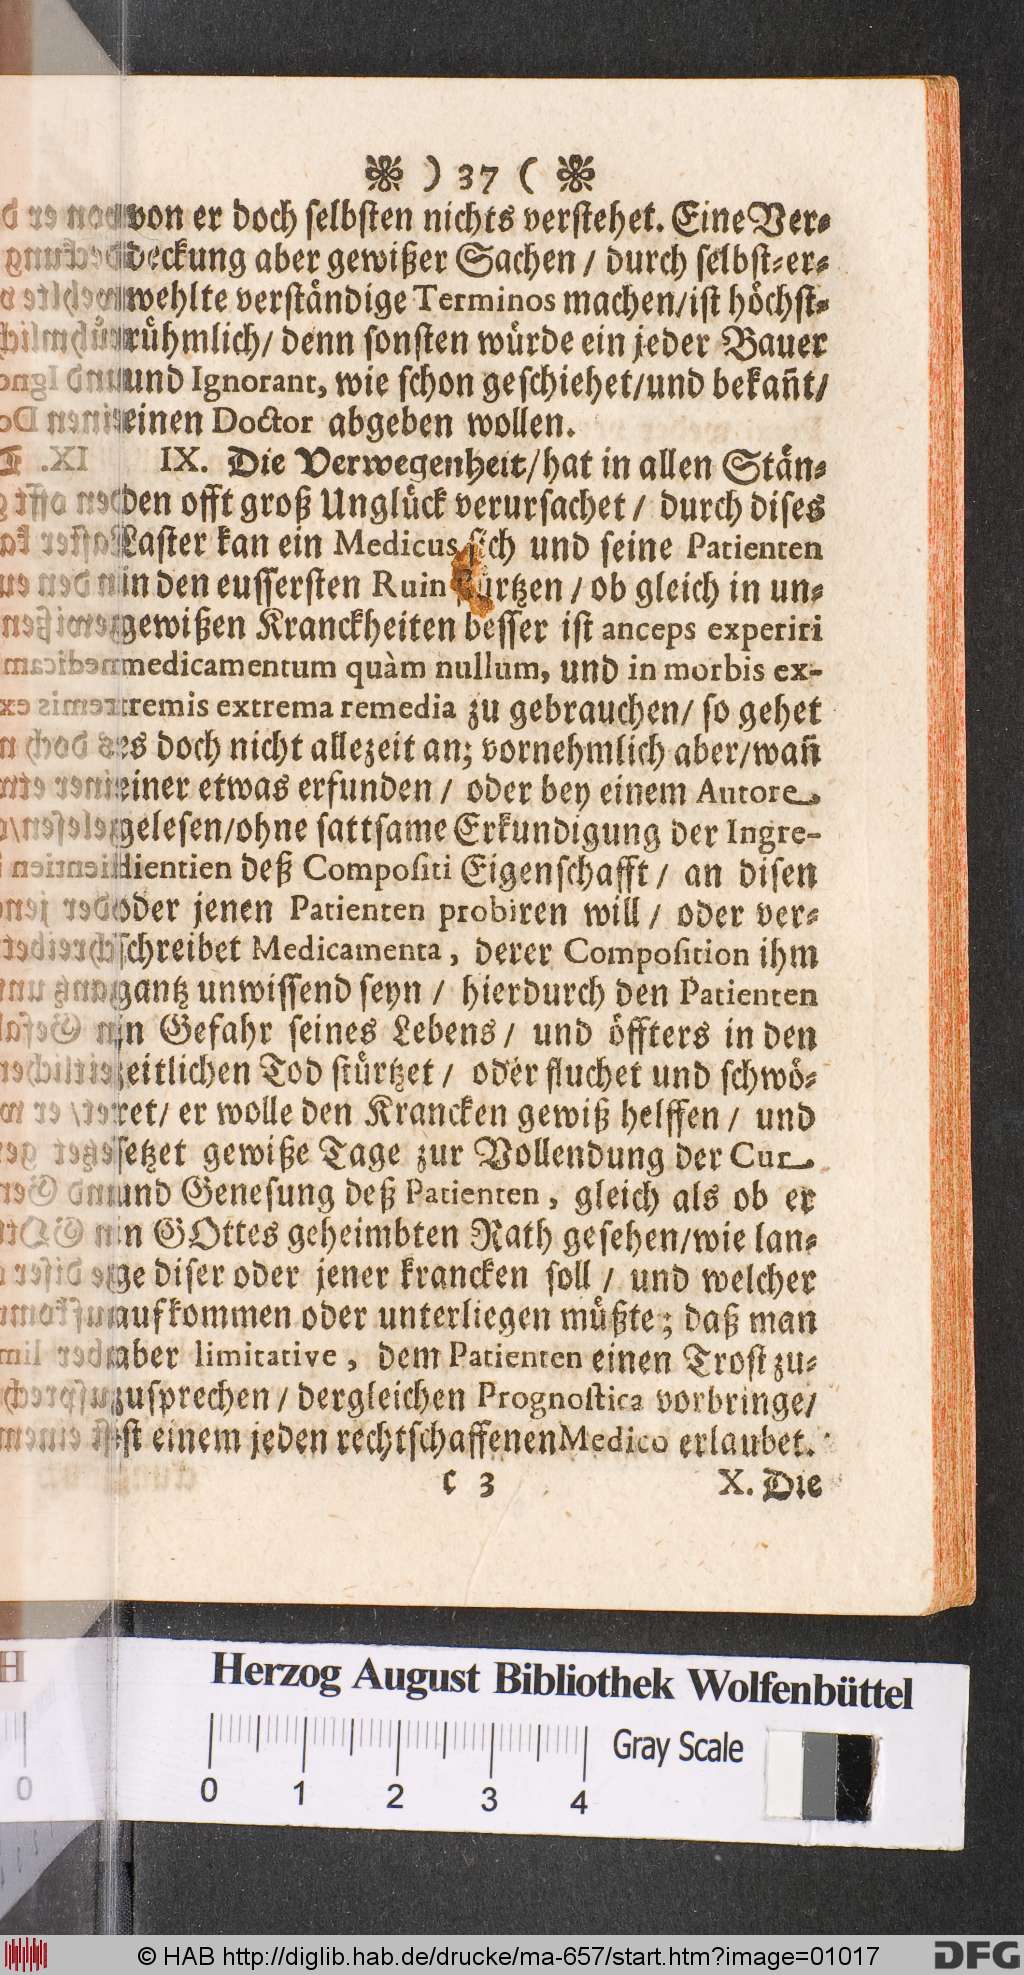 ) 37 (
von er doch selbsten nichts verstehet. Eine Ver⸗
deckung aber gewißer Sachen / durch selbst⸗er⸗
wehlte verständige Terminos machen/ist höchst⸗
rühmlich/ denn sonsten würde ein jeder Bauer
und Ignorant, wie schon geschiehet/und bekañt/
einen Doctor abgeben wollen.
IX. Die Verwegenheit/hat in allen Stän⸗
den offt groß Unglück verursachet / durch dises
Laster kan ein Medicus sich und seine Patienten
in den eussersten Ruin stürtzen / ob gleich in un⸗
gewißen Kranckheiten besser ist anceps experiri
medicamentum quàm nullum, und in morbis ex-
tremis extrema remedia zu gebrauchen/ so gehet
es doch nicht allezeit an; vornehmlich aber/wañ
einer etwas erfunden / oder bey einem Autore
gelesen/ohne sattsame Erkundigung der Ingre-
dientien deß Compositi Eigenschafft / an disen
oder jenen Patienten probiren will / oder ver⸗
schreibet Medicamenta, derer Composition ihm
gantz unwissend seyn / hierdurch den Patienten
in Gefahr seines Lebens / und öffters in den
zeitlichen Tod stürtzet / oder fluchet und schwö⸗
ret/ er wolle den Krancken gewiß helffen / und
setzet gewiße Tage zur Vollendung der Cur
und Genesung deß Patienten, gleich als ob er
in GOttes geheimbten Rath gesehen/wie lan⸗
ge diser oder jener krancken soll / und welcher
aufkommen oder unterliegen müßte; daß man
aber limitative, dem Patienten einen Trost zu⸗
zusprechen / dergleichen Prognostica vorbringe/
ist einem jeden rechtschaffenen Medico erlaubet.
C 3 X. Die
Herzog August Bibliothek Wolfenbüttel
Gray Scale
0 1 2 3 4
0
© HAB http://diglib.hab.de/drucke/ma-657/start.htm?image=01017
DFG